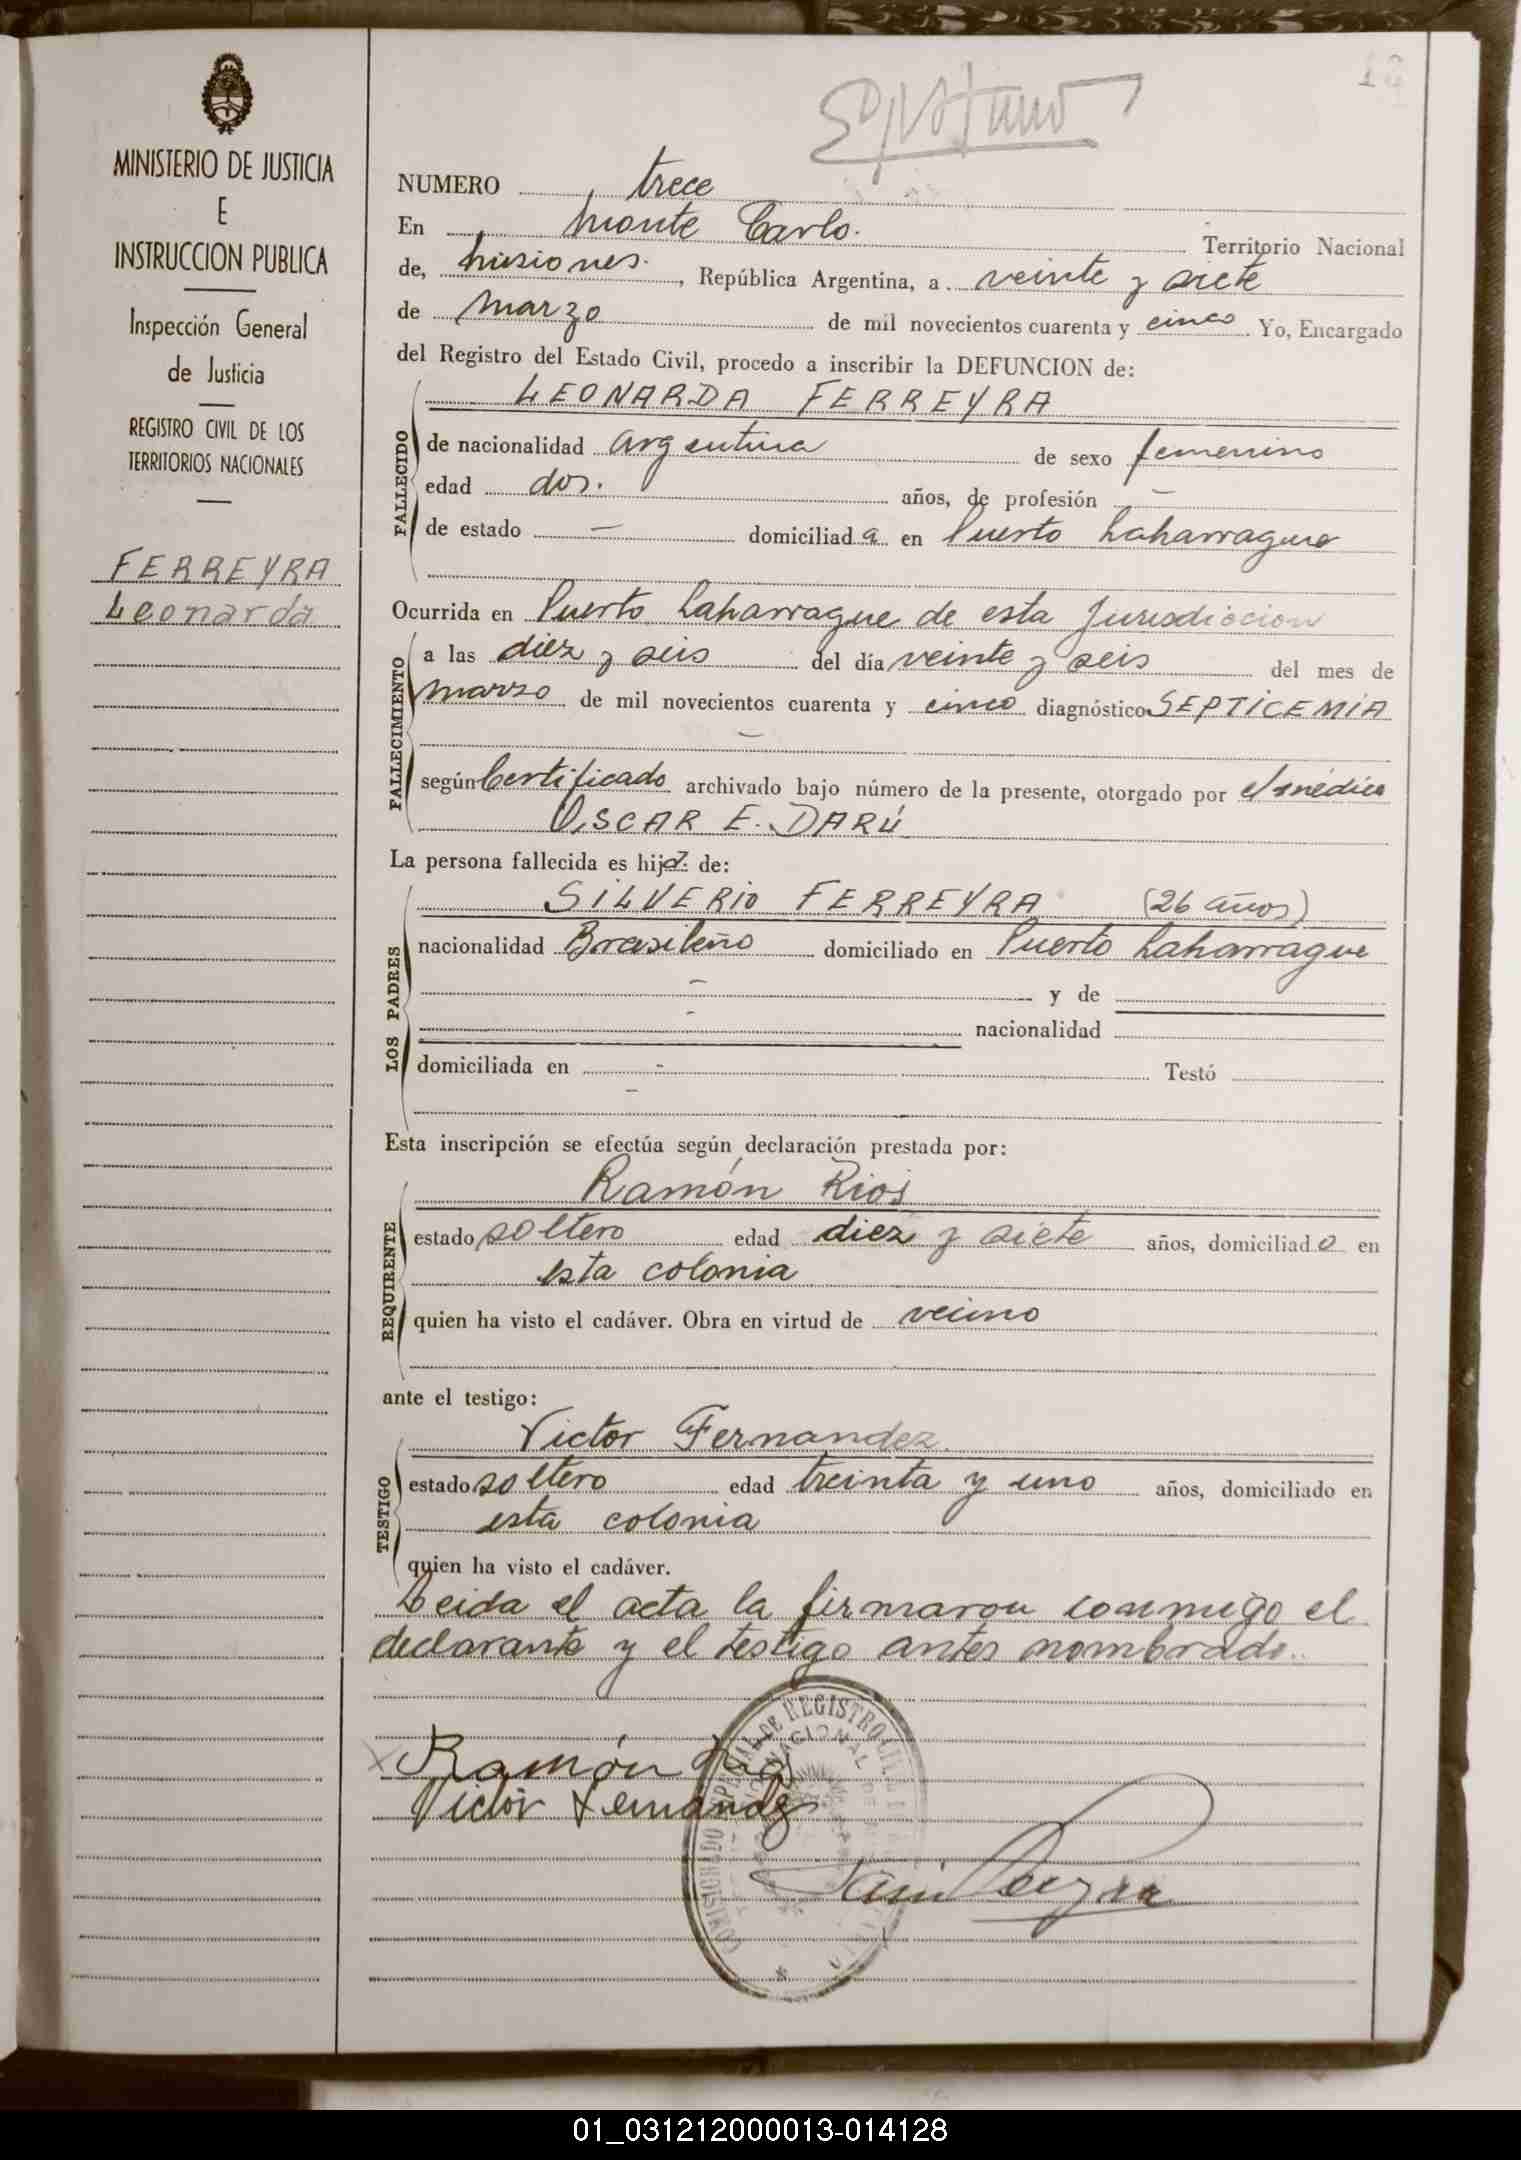 MINISTERIO DE JUSTICIA
E
INSTRUCCION PUBLICA
Inspección General
de Justicia
REGISTRO CIVIL DE LOS
TERRITORIOS NACIONALES
FERREYRA
Leonarda
NUMERO trece
En Monte Carlo. Territorio Nacional
de, Misiones. , República Argentina, a veinte y siete
de Marzo de mil novecientos cuarenta y cinco. Yo, Encargado
del Registro del Estado Civil, procedo a inscribir la DEFUNCION de:
FALLECIDO
LEONARDA FERREYRA
de nacionalidad argentina de sexo femenino
edad dos. años, de profesión —
de estado — domiciliada en Puerto Laharrague
Ocurrida en Puerto Laharrague de esta Jurisdiccion
FALLECIMIENTO
a las diez y seis del día veinte y seis del mes de
marzo de mil novecientos cuarenta y cinco diagnóstico SEPTICEMIA
—
según Certificado archivado bajo número de la presente, otorgado por el médico
OSCAR E. DARÚ
La persona fallecida es hija de:
LOS PADRES
SILVERIO FERREYRA (26 años)
nacionalidad Brasileño domiciliado en Puerto Laharrague
— y de
— nacionalidad
domiciliada en - Testó
—
Esta inscripción se efectúa según declaración prestada por:
REQUIRENTE
Ramón Rios
estado soltero edad diez y siete años, domiciliado en
esta colonia
quien ha visto el cadáver. Obra en virtud de vecino
ante el testigo:
TESTIGO
Victor Fernandez
estado soltero edad treinta y uno años, domiciliado en
esta colonia
quien ha visto el cadáver.
Leida el acta la firmaron conmigo el
declarante y el testigo antes nombrado..
Ramón
Victor Fernandez
REGISTRO CIVIL
01_031212000013-014128